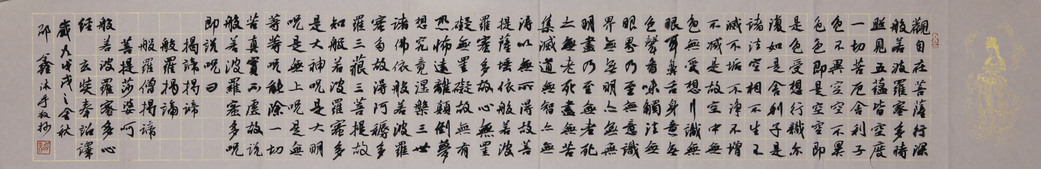 觀自在菩薩行深
般若波羅蜜多時
照見五蘊皆空度
一切苦厄舍利子
色不異空空不異
色色即是空空即
是色受想行識亦
復如是舍利子是
諸法空相不生不
滅不垢不淨不增
不減是故空中無
色無受想行識無
眼耳鼻舌身意無
色聲香味觸法無
眼界乃至無意識
界無無明亦無無
明盡乃至無老死
亦無老死盡無苦
集滅道無智亦無
得以無所得故菩
提薩埵依般若波
羅蜜多故心無罣
礙無罣礙故無有
恐怖遠離顛倒夢
想究竟涅槃三世
諸佛依般若波羅
蜜多故得阿耨多
羅三藐三菩提故
知般若波羅蜜多
是大神咒是大明
咒是無上咒是無
等等咒能除一切
苦真實不虛故說
般若波羅蜜多咒
即說咒曰
揭諦揭諦
般羅揭諦
般羅僧揭諦
菩提莎婆訶
般若波羅蜜多心
經 玄奘奉詔譯
歲在戊戌之金秋
邵鑫沐手敬抄